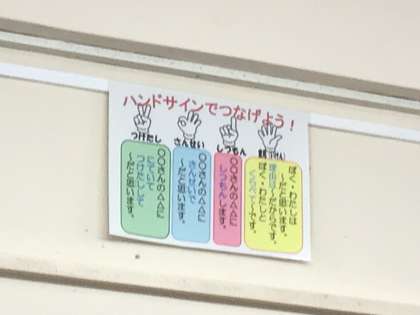 ハンドサインでつなげよう!
つけたし
さんせい
しつもん
〇〇さんの△△に
ついて
つけたしで、
〜だと思います。
〇〇さんの△△に
さんせいで
〜だと思います。
〇〇さんの△△に
しつもんします。
ぼく・わたしは
〜だと思います。
理由は〜だからです。
ぼく・わたしと
くらべて〜です。